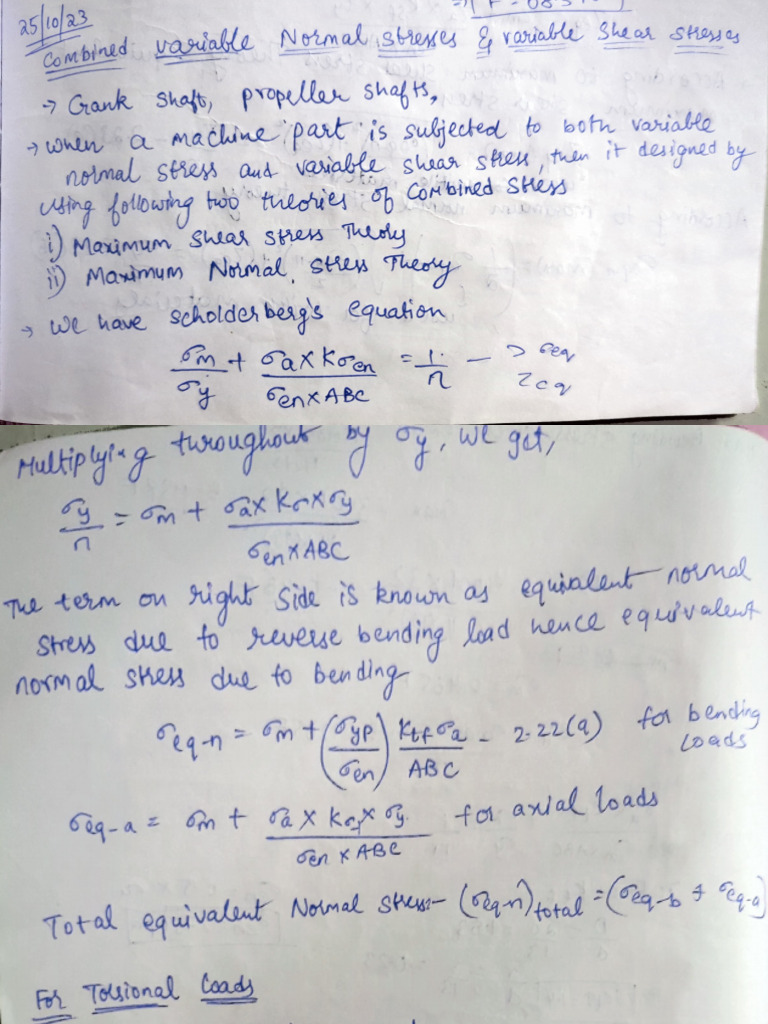 25/10/23
Combined variable Normal stresses & variable Shear stresses
→ Crank shaft, propeller shafts,
→ when a machine part is subjected to both variable
normal stress and variable shear stress, then it designed by
using following two theories of Combined stress
i) Maximum Shear stress Theory
ii) Maximum Normal stress Theory
→ We have scholderberg's equation
σm/σy + σa×Kσen/σen×ABC = 1/n — > σeq
2eq
Multiplying throughout by σy, we get,
σy/n = σm + σa×Kσ×σy/σen×ABC
The term on right side is known as equivalent normal
stress due to reverse bending load hence equivalent
normal stress due to bending
σeq-n = σm + (σyp/σen) Ktf σa/ABC - 2.22(a) for bending loads
σeq-a = σm + σa × Kσ × σy/σen × ABC for axial loads
Total equivalent Normal stress:- (σeq-n)total = (σeq-b + σeq-a)
For Torsional Loads